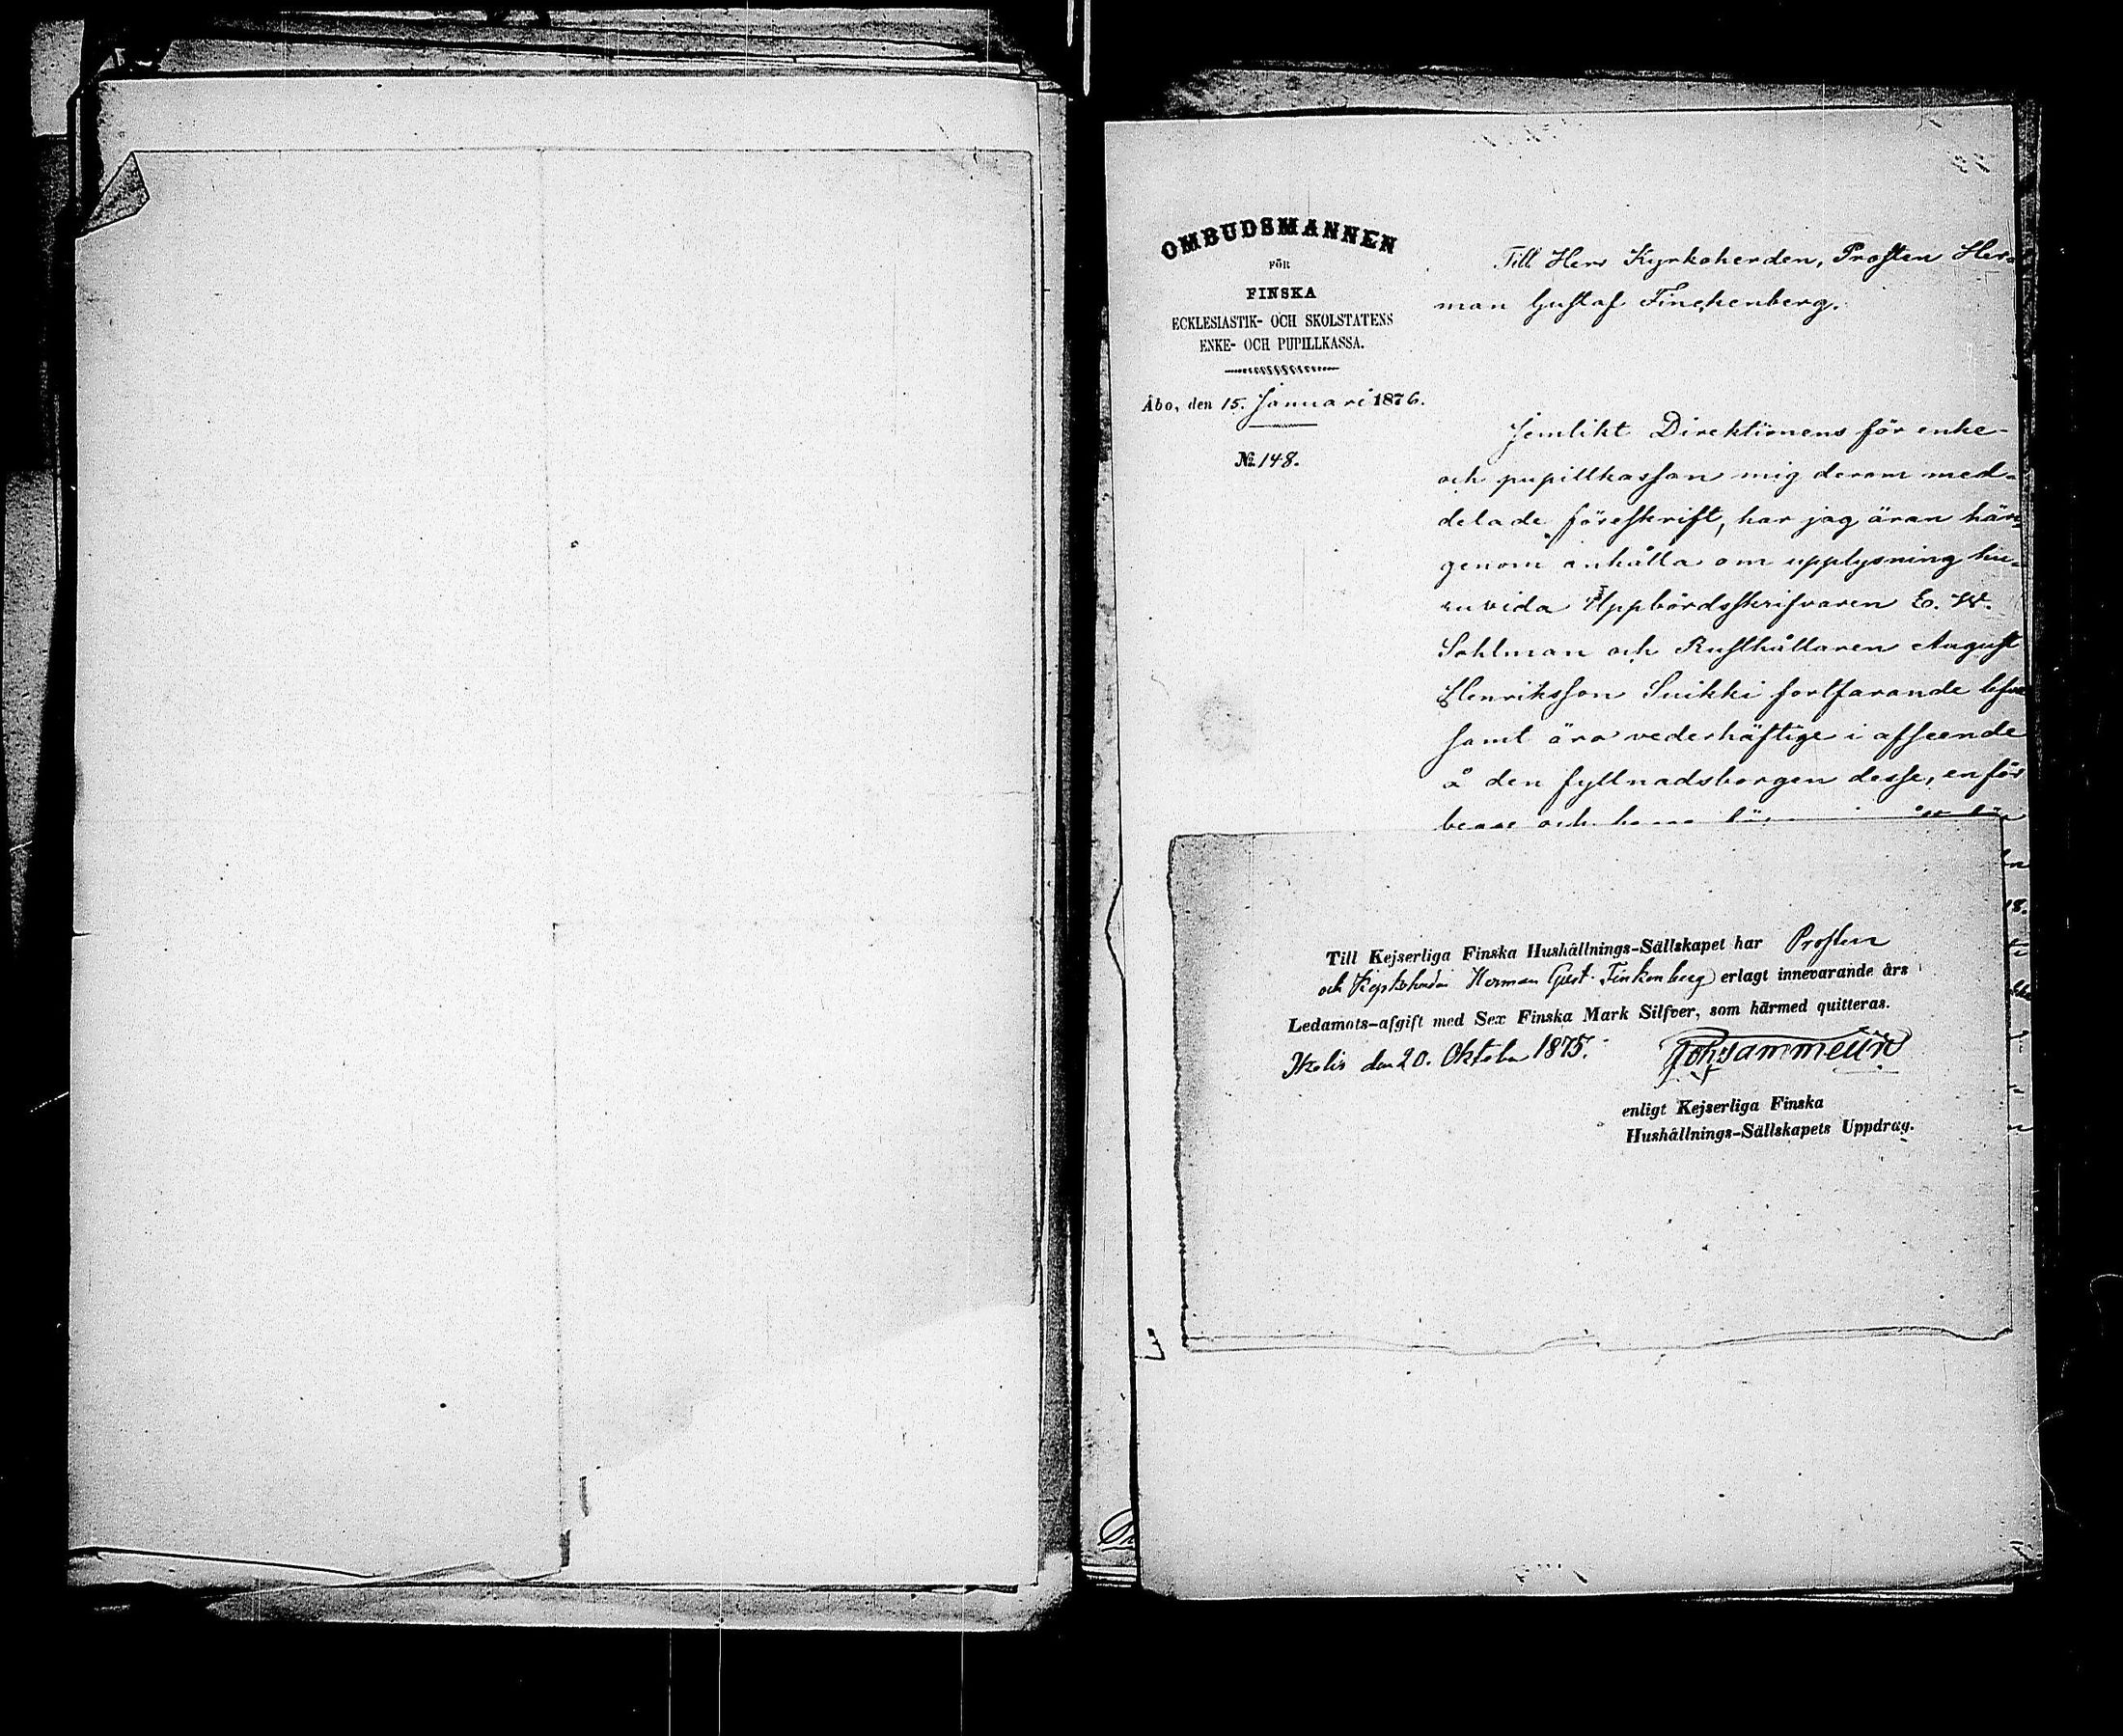 OMBUDSMANNEN
FÖR
FINSKA
ECKLESIASTIK- OCH SKOLSTATENS
ENKE- OCH PUPILLKASSA.
Åbo, den 15. Januari 1876.
№ 148.
Till Herr Kyrkoherden, Prosten Her-
man Gustaf Finckenberg.
Jemlikt Direktionens för enke-
och pupillkassan mig derom med-
delade föreskrift, har jag äran här-
genom anhålla om upplysning hu-
ruvida Uppbördsskrifvaren E. W.
Sohlman och Rusthållaren August
Henriksson Suikki fortfarande lefva
samt äro vederhäftige i afseende
å den fyllnadsborgen desse, en för
begge och
Till Kejserliga Finska Hushållnings-Sällskapet har Prosten
och Kyrkoherden Herman Gust. Finkenberg erlagt innevarande års
Ledamots-afgift med Sex Finska Mark Silfver, som härmed quitteras.
den 20. Oktober 1875.
enligt Kejserliga Finska
Hushållnings-Sällskapets Uppdrag.